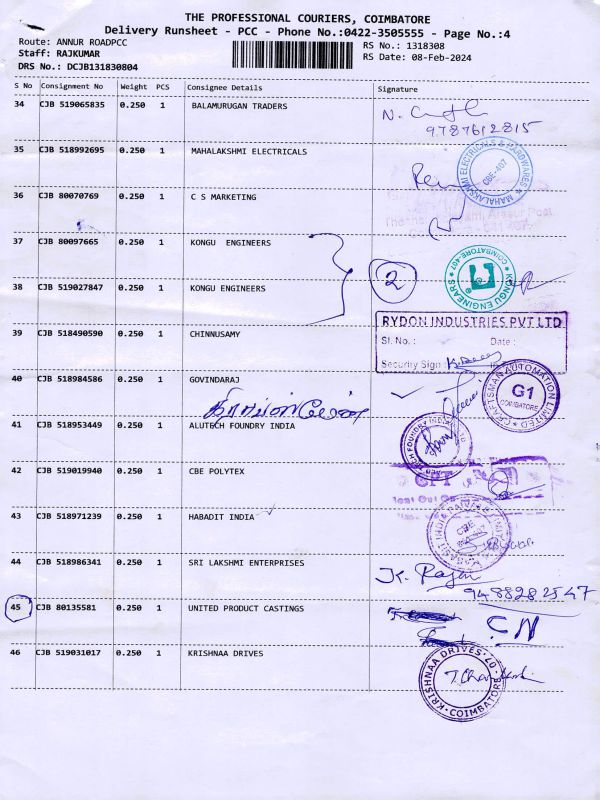 THE PROFESSIONAL COURIERS, COIMBATORE
Delivery Runsheet - PCC - Phone No.:0422-3505555 - Page No.:4
Route: ANNUR ROADPCC
Staff: RAJKUMAR
DRS No.: DCJB131830804
RS No.: 1318308
RS Date: 08-Feb-2024
S No Consignment No Weight PCS Consignee Details Signature
34 CJB 519065835 0.250 1 BALAMURUGAN TRADERS
9787612815
35 CJB 518992695 0.250 1 MAHALAKSHMI ELECTRICALS
MAHALAKSHMI ELECTRICALS & HARDWARES
CBE-407
36 CJB 80070769 0.250 1 C S MARKETING
37 CJB 80097665 0.250 1 KONGU ENGINEERS
2
KONGU ENGINEARS
COIMBATORE-407
38 CJB 519027847 0.250 1 KONGU ENGINEERS
RYDON INDUSTRIES PVT LTD
39 CJB 518490590 0.250 1 CHINNUSAMY
Sl. No.: Date:
Security Sign:
40 CJB 518984586 0.250 1 GOVINDARAJ
CRAFTSMAN AUTOMATION LIMITED
G1
COIMBATORE
41 CJB 518953449 0.250 1 ALUTECH FOUNDRY INDIA
42 CJB 519019940 0.250 1 CBE POLYTEX
43 CJB 518971239 0.250 1 HABADIT INDIA
CBE
44 CJB 518986341 0.250 1 SRI LAKSHMI ENTERPRISES
9488282547
45 CJB 80135581 0.250 1 UNITED PRODUCT CASTINGS
46 CJB 519031017 0.250 1 KRISHNA DRIVES
KRISHNAA DRIVES
COIMBATORE